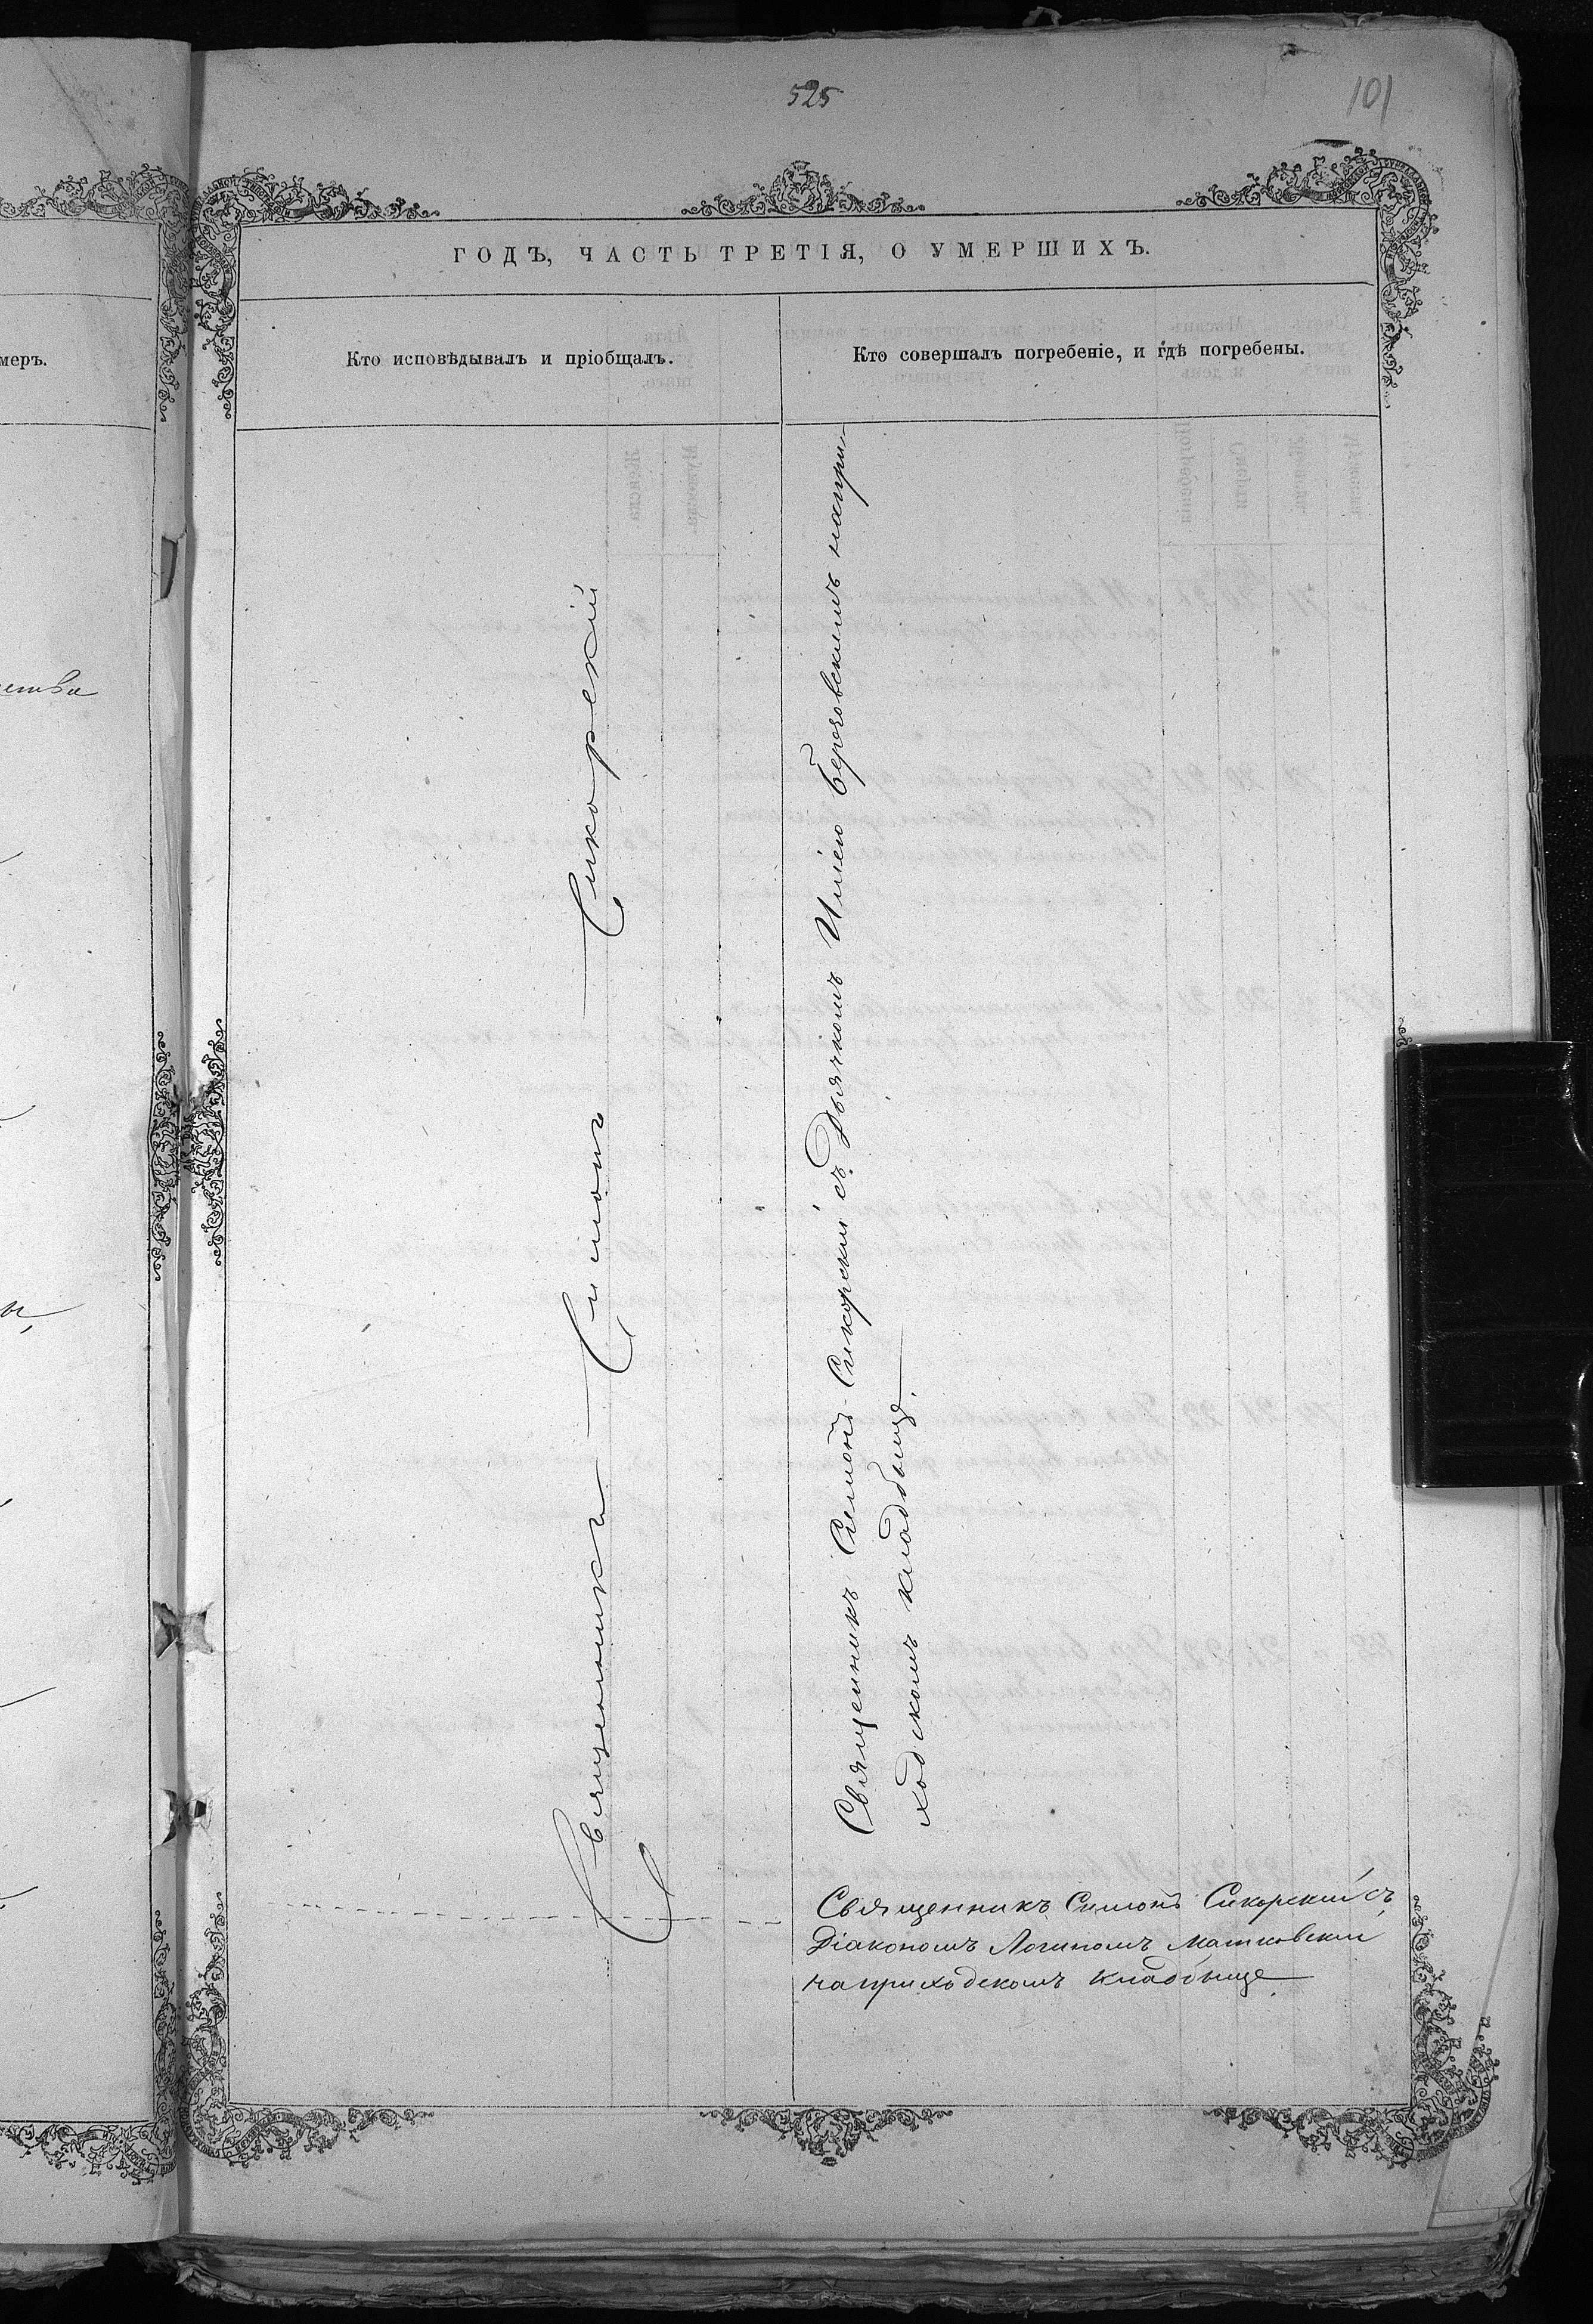 525
101
ГОДЪ, ЧАСТЬ ТРЕТІЯ, О УМЕРШИХЪ.
меръ.
Кто исповѣдывалъ и пріобщалъ.
Кто совершалъ погребеніе, и гдѣ погребены.
Священникъ Симонъ Сикорскій
Священникъ Симонъ Сикорскій съ Дьячкомъ Иліею Березовскимъ напри-
ходскомъ кладбыще.
Священникъ Симонъ Сикорскій съ
Діакономъ Логиномъ Матковскимъ
на приходскомъ кладбыще